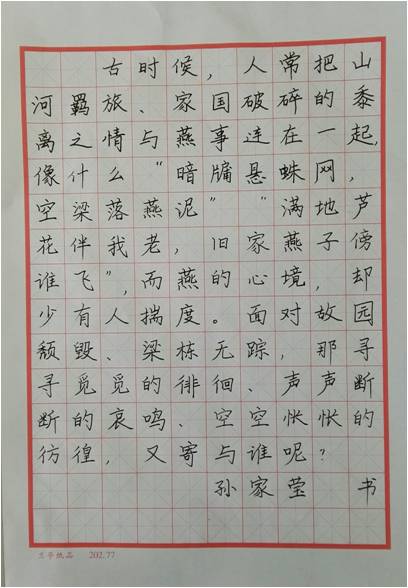 古时候，人常把山
河羁旅、家国破碎的黍
离之情与燕事连在一起，
像什么“暗牖悬蛛网，
空梁落燕泥”“满地芦
花伴我老，旧家燕子傍
谁飞”，而燕的心境，却
少有人揣度。面对故园
颓毁、梁栋无踪，那寻
寻觅觅的徘徊、声声断
断的哀鸣、空空怅怅的
彷徨，又寄与谁呢？
孙家莹 书
兰亭纸品 202.77